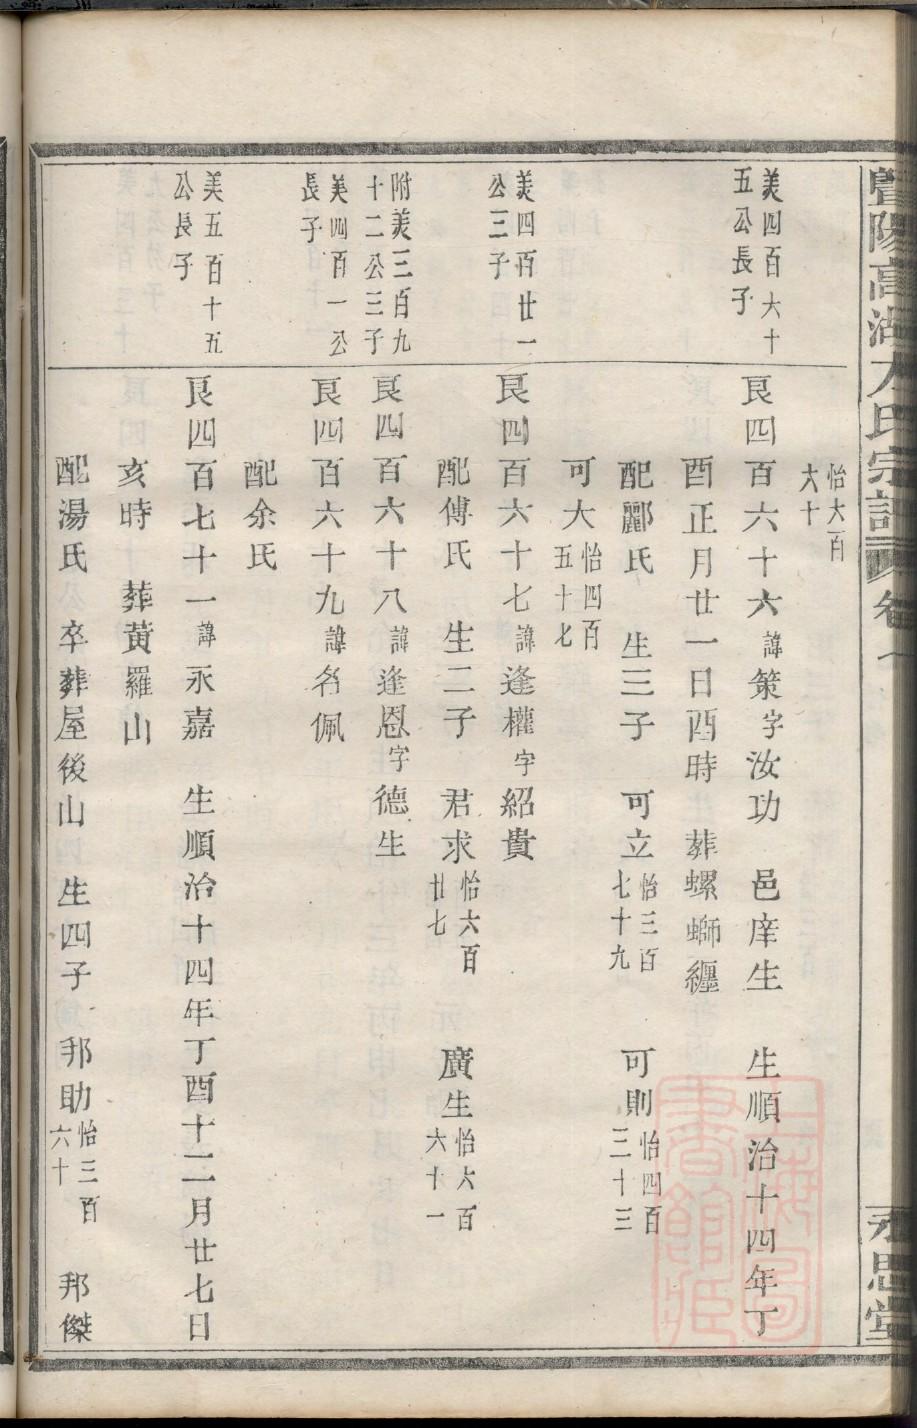 暨陽高湖方氏宗譜 卷一 永思堂
怡六百六十
美四百六十五公長子
良四百六十六諱策字汝功 邑庠生 生順治十四年丁
酉正月廿一日酉時 葬螺螄纏
配酈氏 生三子 可立怡三百七十九 可則怡四百三十三
可大怡四百五十七
美四百廿一公三子
良四百六十七諱逢權字紹貴
配傅氏 生二子 君求怡六百廿七 廣生怡六百六十一
附美三百九十二公三子
良四百六十八諱逢恩字德生
美四百一公長子
良四百六十九諱名佩
配余氏
美五百十五公長子
良四百七十一諱永嘉 生順治十四年丁酉十二月廿七日
亥時 葬黃羅山
配湯氏 卒葬屋後山 生四子 邦助怡三百六十 邦傑